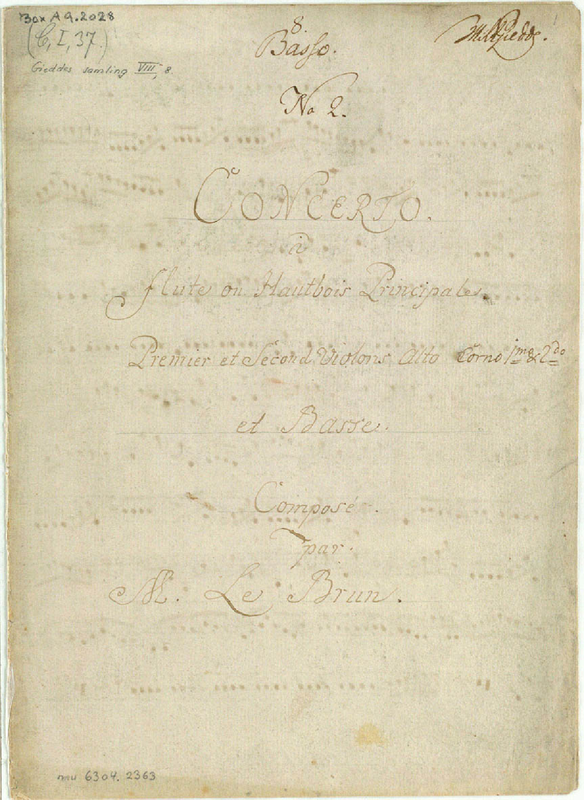 Box A 9.2028
(C, I, 37.)
Gieddes samling VIII, 8.
8.
Basso.
No 2.
CONCERTO.
à
Flute ou Hautbois Principale.
Premier et Second Violons Alto Corno 1mo & 2do
et Basse.
Composé.
par.
M. Le Brun.
mu 6304. 2363